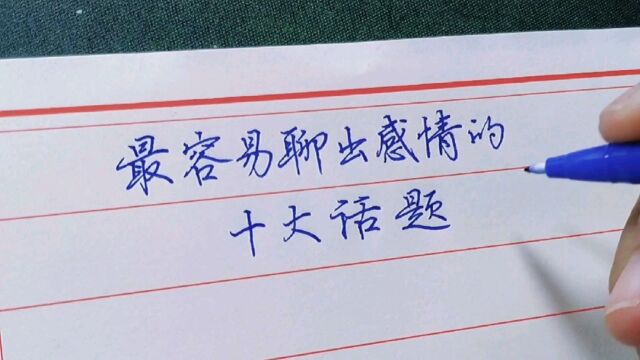 最容易聊出感情的
十大话题